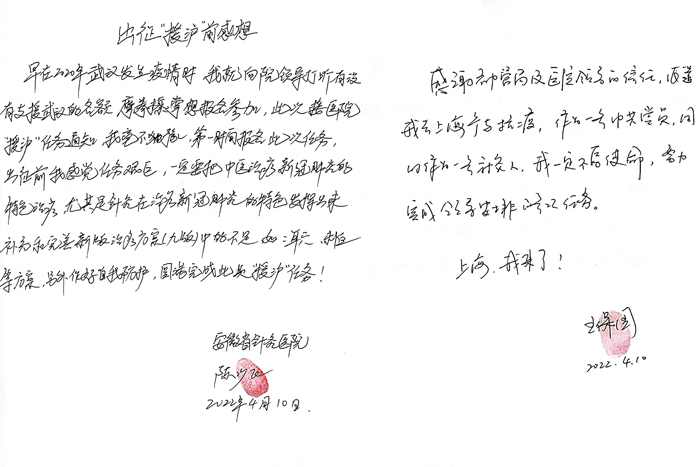 出征"援沪"前感想
早在2020年武汉发生疫情时，我就向院领导打听有没
有支援武汉的名额，摩拳擦掌想报名参加，此次接医院
"援沪"任务通知，我毫不犹豫，第一时间报名此次任务，
出征前我感觉任务艰巨，一定要把中医治疗新冠肺炎的
特色治疗，尤其是针灸在治疗新冠肺炎的特色发挥出来
补充和完善新版治疗方案(九版)中的不足，如
等方案，另外做好自我防护，圆满完成此次"援沪"任务！
安徽省针灸医院
陈
2022年4月10日.
感谢市中管局及医院领导的信任，选送
我去上海参与抗疫，作为一名中共党员，同
时作为一名针灸人，我一定不辱使命，努力
完成领导安排的各项任务。
上海，我来了！
王保国
2022.4.10